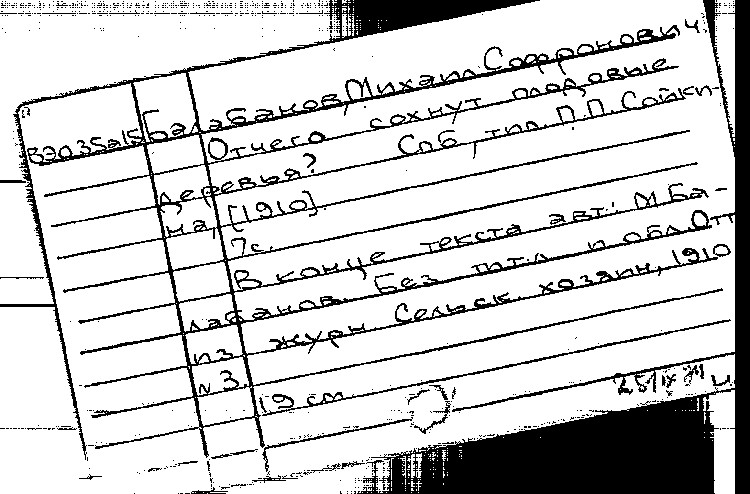 Балабанов, Михаил Софронович.
ВЭ035а15
Отчего сохнут плодовые
деревья? Спб, тип. П.П. Сойки-
на, [1910].
7с.
В конце текста авт.: М. Ба-
лабанов. Без тит.л и обл. Отт
из журн Сельск. хозяин, 1910
№ 3.
19 см